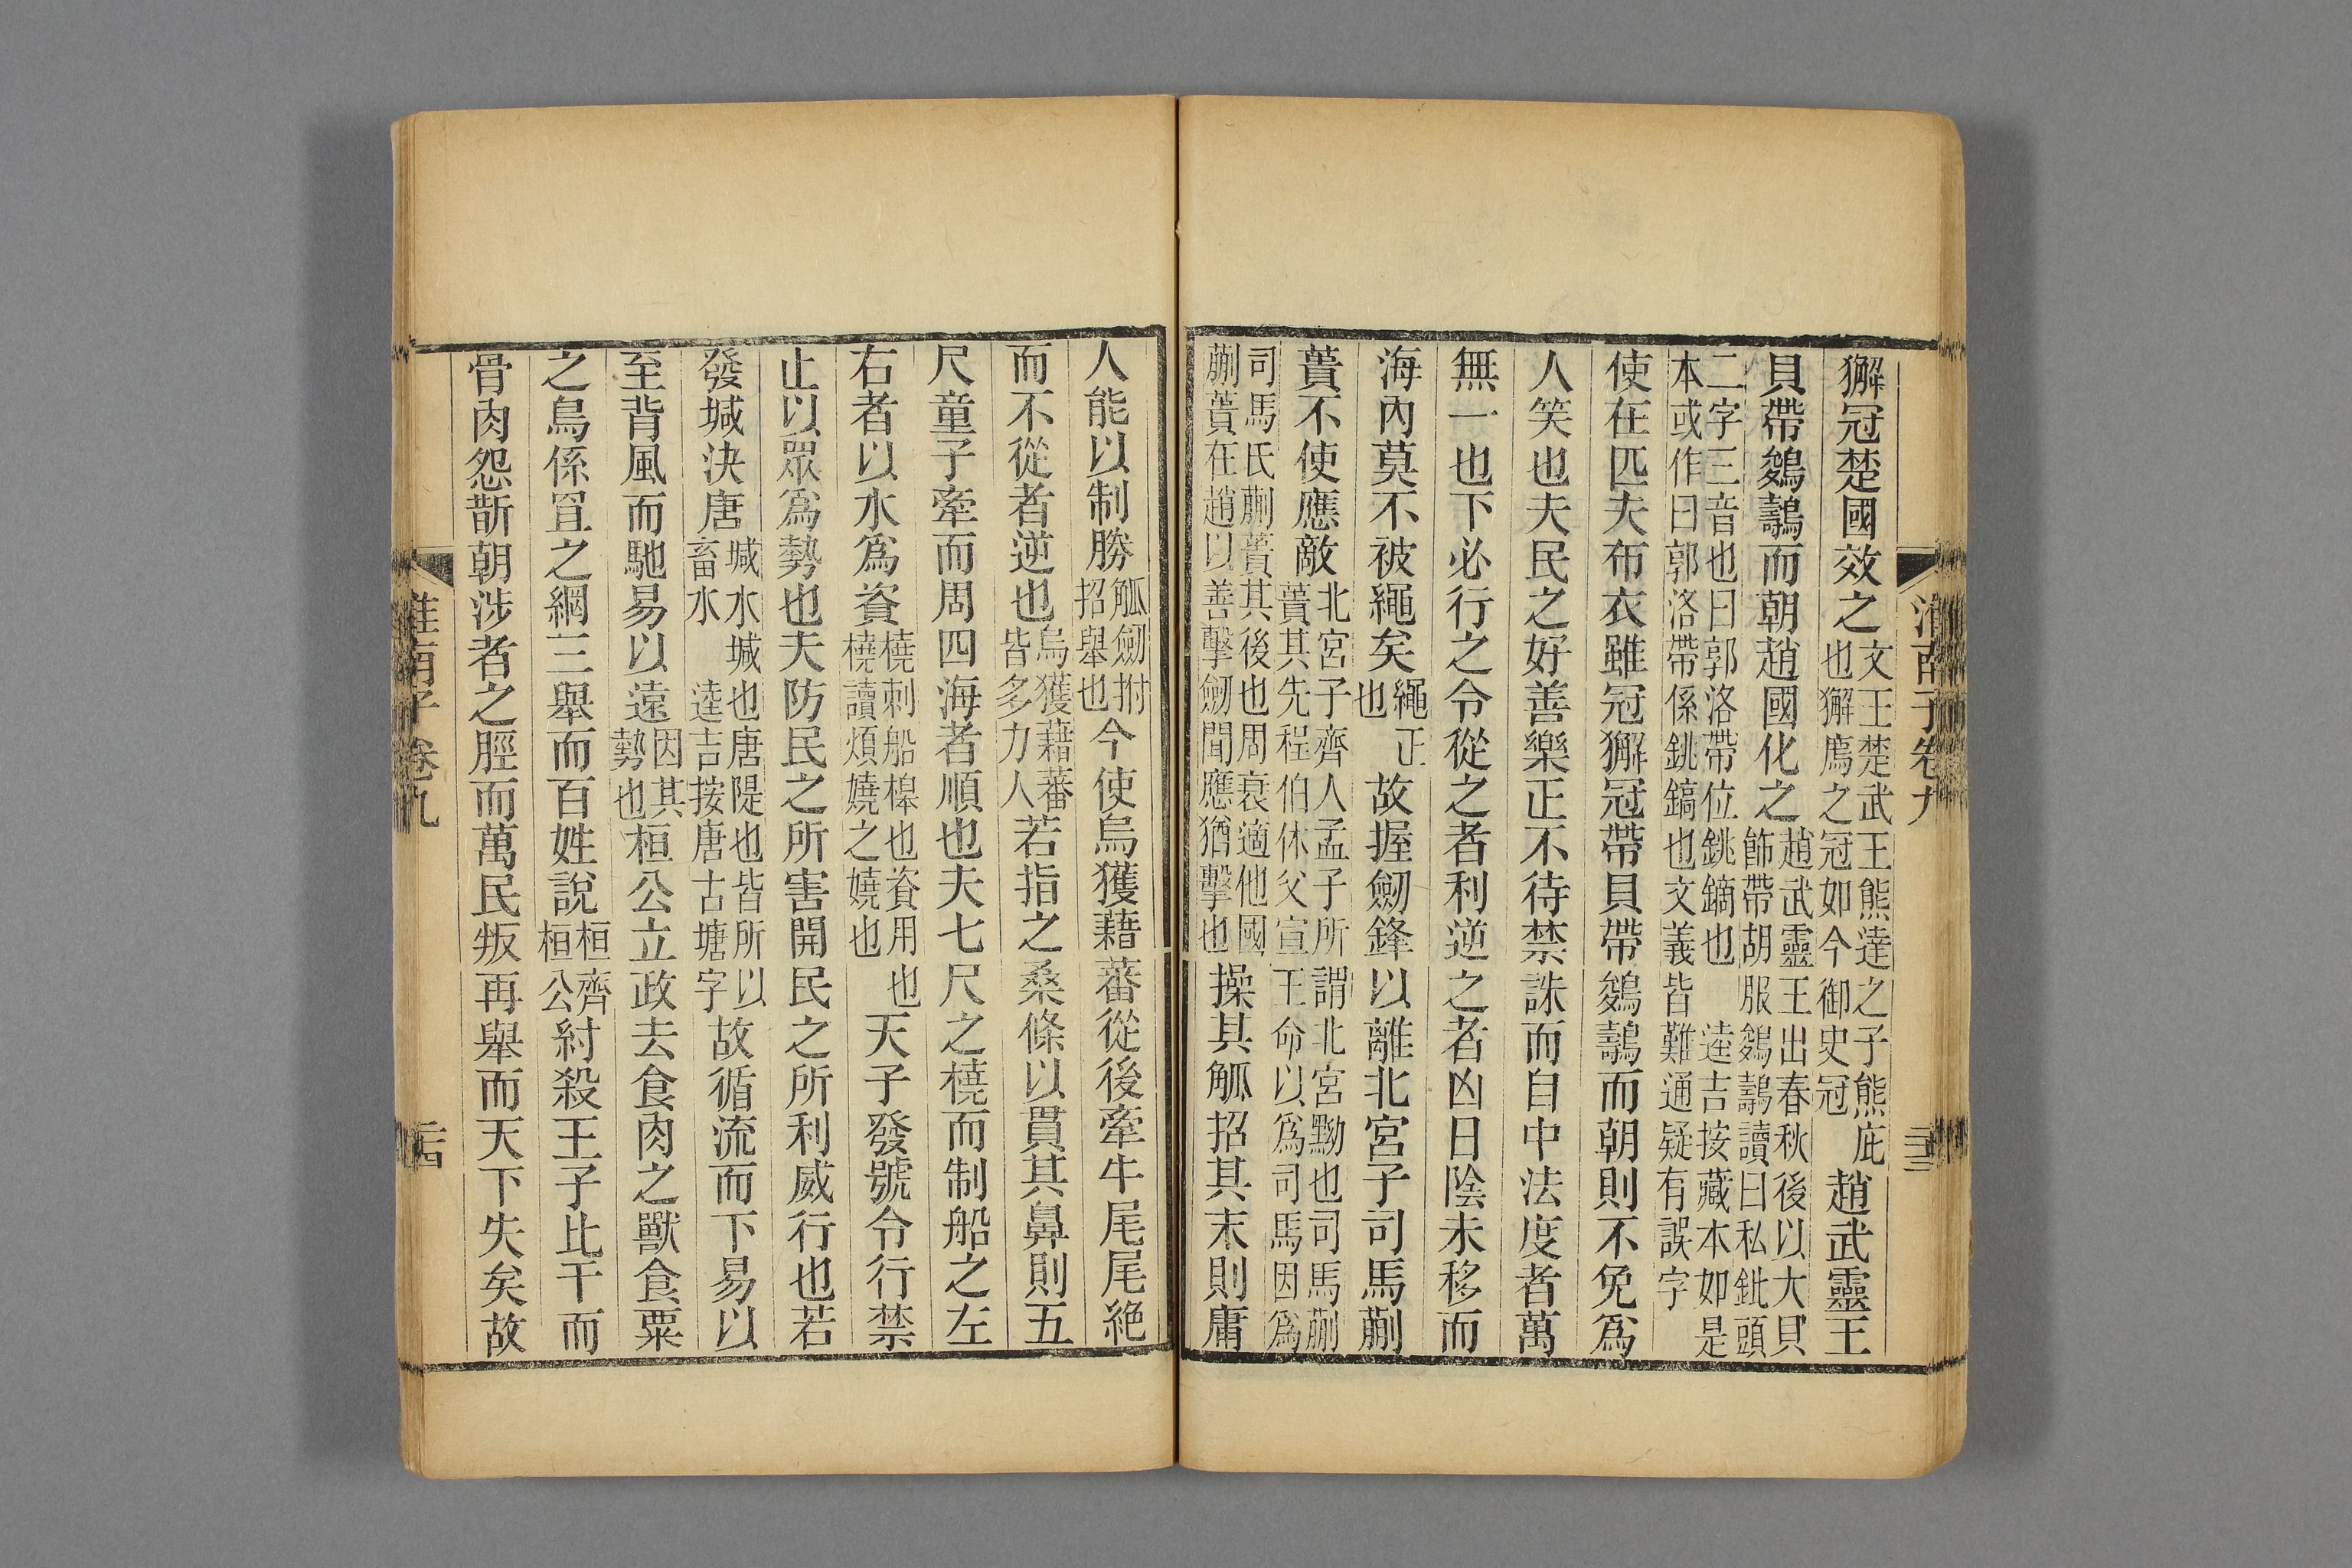 淮南子卷九
三三
獬冠楚國效之文王楚武王熊達之子熊庛也獬廌之冠如今御史冠趙武靈王
貝帶鵕鸃而朝趙國化之趙武靈王出春秋後以大貝飾帶胡服鵕鸃讀曰私鈚頭
二字三音也曰郭洛帶位銚鏑也逵吉按藏本如是本或作曰郭洛帶係銚鎬也文義皆難通疑有誤字
使在匹夫布衣雖冠獬冠帶貝帶鵕鸃而朝則不免爲
人笑也夫民之好善樂正不待禁誅而自中法度者萬
無一也下必行之令從之者利逆之者凶日陰未移而
海內莫不被繩矣繩正也故握劒鋒以離北宮子司馬蒯
蕢不使應敵北宮子齊人孟子所謂北宮黝也司馬蒯蕢其先程伯休父宣王命以爲司馬因爲
司馬氏蒯蕢其後也周衰適他國蒯蕢在趙以善擊劒聞應猶擊也操其觚招其末則庸
人能以制勝觚劒拊招舉也今使烏獲藉蕃從後牽牛尾尾絕
而不從者逆也烏獲藉蕃皆多力人若指之桑條以貫其鼻則五
尺童子牽而周四海者順也夫七尺之橈而制船之左
右者以水爲資橈刺船槹也資用也橈讀煩嬈之嬈也天子發號令行禁
止以眾爲勢也夫防民之所害開民之所利威行也若
發堿決唐堿水堿也唐隄也皆所以畜水逵吉按唐古塘字故循流而下易以
至背風而馳易以遠因其勢也桓公立政去食肉之獸食粟
之鳥係罝之網三舉而百姓說桓齊桓公紂殺王子比干而
骨肉怨斮朝涉者之脛而萬民叛再舉而天下失矣故
淮南子卷九
三四